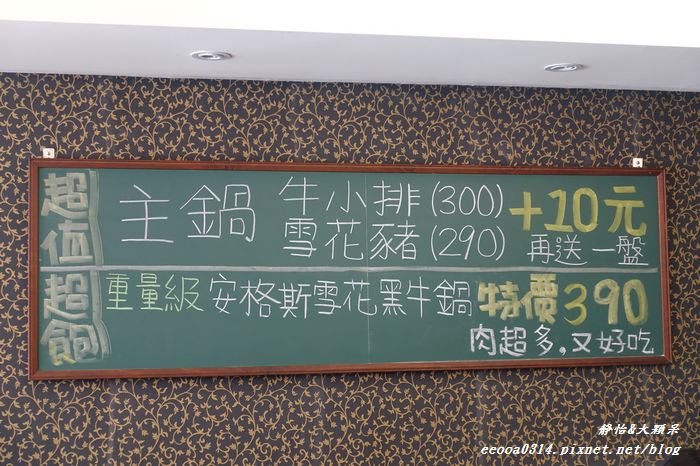 超值
主鍋 牛小排(300) +10元
雪花豬(290) 再送一盤
超飽
重量級 安格斯雪花黑牛鍋 特價390
肉超多,又好吃
靜怡&大顆呆
eeooa0314.pixnet.net/blog